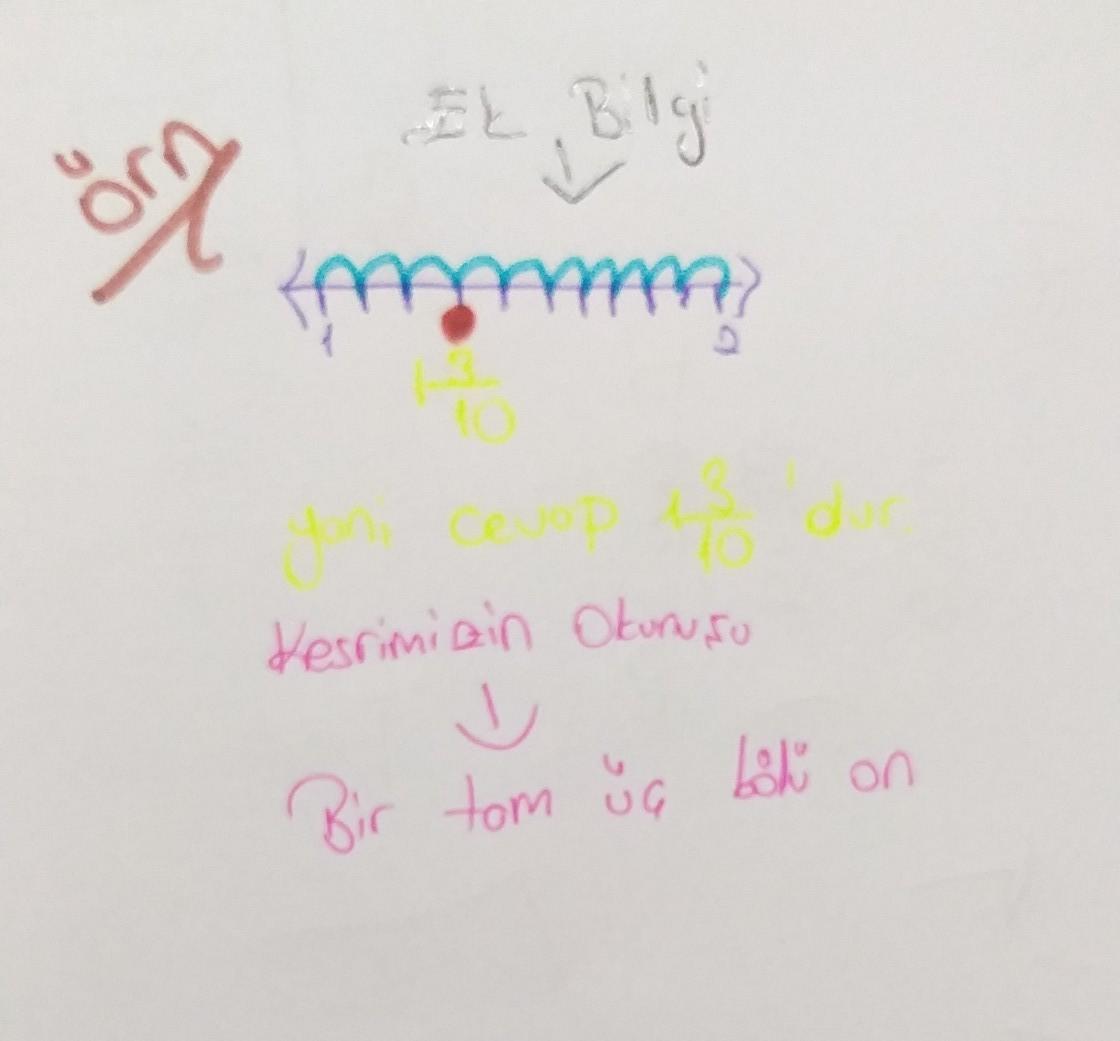 Örn
Ek Bilgi
1 2
1 3/10
yani cevap 1 3/10 'dur.
Kesrimizin Okunuşu
Bir tam üç bölü on